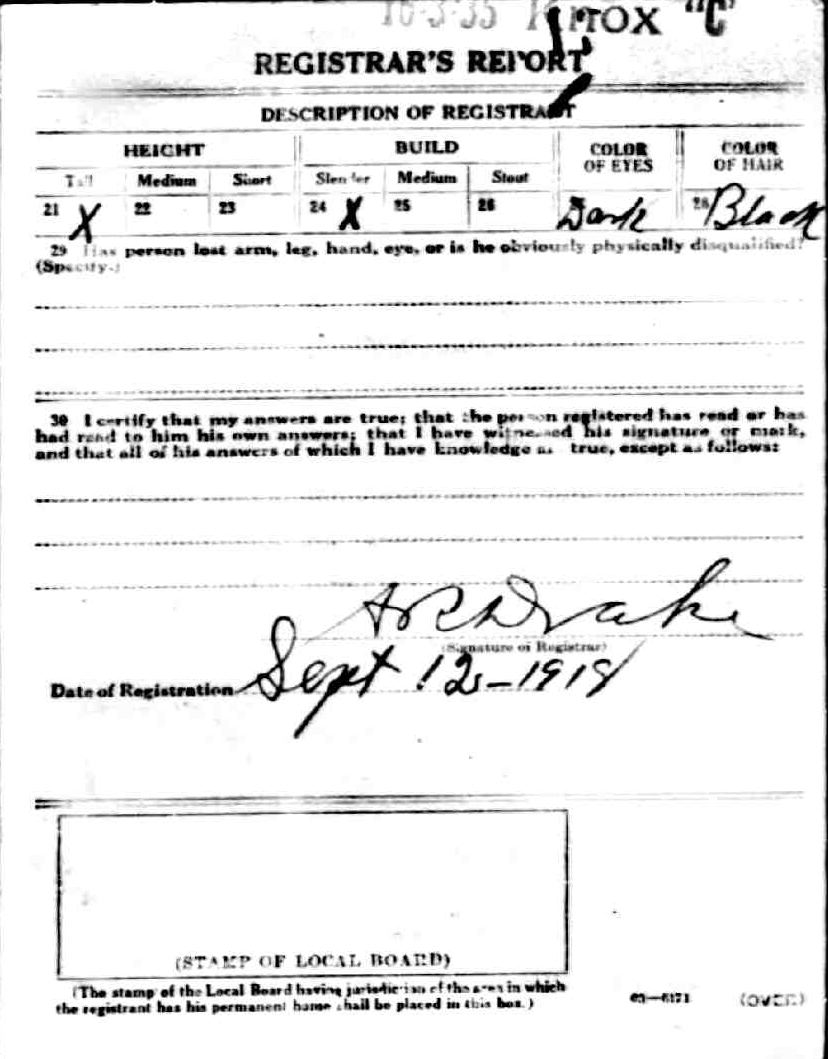 16-3-35 Knox "C"
REGISTRAR'S REPORT
DESCRIPTION OF REGISTRANT
HEIGHT BUILD COLOR OF EYES COLOR OF HAIR
Tall Medium Short Slender Medium Stout
21 X 22 23 24 X 25 26 27 Dark 28 Black
29 Has person lost arm, leg, hand, eye, or is he obviously physically disqualified?
(Specify.)
30 I certify that my answers are true; that the person registered has read or has
had read to him his own answers; that I have witnessed his signature or mark,
and that all of his answers of which I have knowledge are true, except as follows:
Drake
(Signature of Registrar)
Date of Registration Sept 12-1918
(STAMP OF LOCAL BOARD)
(The stamp of the Local Board having jurisdiction of the area in which
the registrant has his permanent home shall be placed in this box.)
03—6171 (OVER)